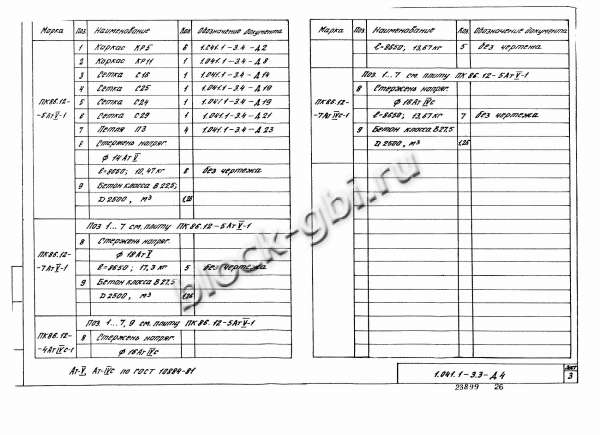 Марка Поз Наименование Кол Обозначение документа
1 Каркас КР5 6 1.041.1-3.4-Д2
2 Каркас КР11 1 1.041.1-3.4-Д8
3 Сетка С16 1 1.041.1-3.4-Д14
ПК86.12- 4 Сетка С25 1 1.041.1-3.4-Д18
-5АтV-1 5 Сетка С24 1 1.041.1-3.4-Д19
6 Сетка С29 1 1.041.1-3.4-Д21
7 Петля П3 4 1.041.1-3.4-Д23
8 Стержень напряг.
ф 14АтV
ℓ=8650; 10,47кг 8 без чертежа
9 Бетон класса В22,5;
D 2500, м³ 1,26
Поз 1...7 см. плиту ПК86.12-5АтV-1
8 Стержень напряг.
ПК86.12- ф 18АтV
-7АтV-1 ℓ=8650; 17,3кг 5 без чертежа
9 Бетон класса В27,5
D 2500, м³ 1,26
Поз. 1...7, 9 см. плиту ПК86.12-5АтV-1
ПК86.12- 8 Стержень напряг.
-4АтIVс-1 ф 16АтIVс
Ат-V, Ат-IVс по ГОСТ 10884-81
Марка Поз Наименование Кол Обозначение документа
ℓ=8650, 13,67кг 5 без чертежа
Поз. 1...7 см. плиту ПК86.12-5АтV-1
8 Стержень напряг.
ПК86.12- ф 16АтIVс
-7АтIVс-1 ℓ=8650; 13,67кг 7 без чертежа
9 Бетон класса В27,5
D 2500, м³ 1,26
block-gbi.ru
1.041.1-3.3-Д4
Лист
3
23899 26